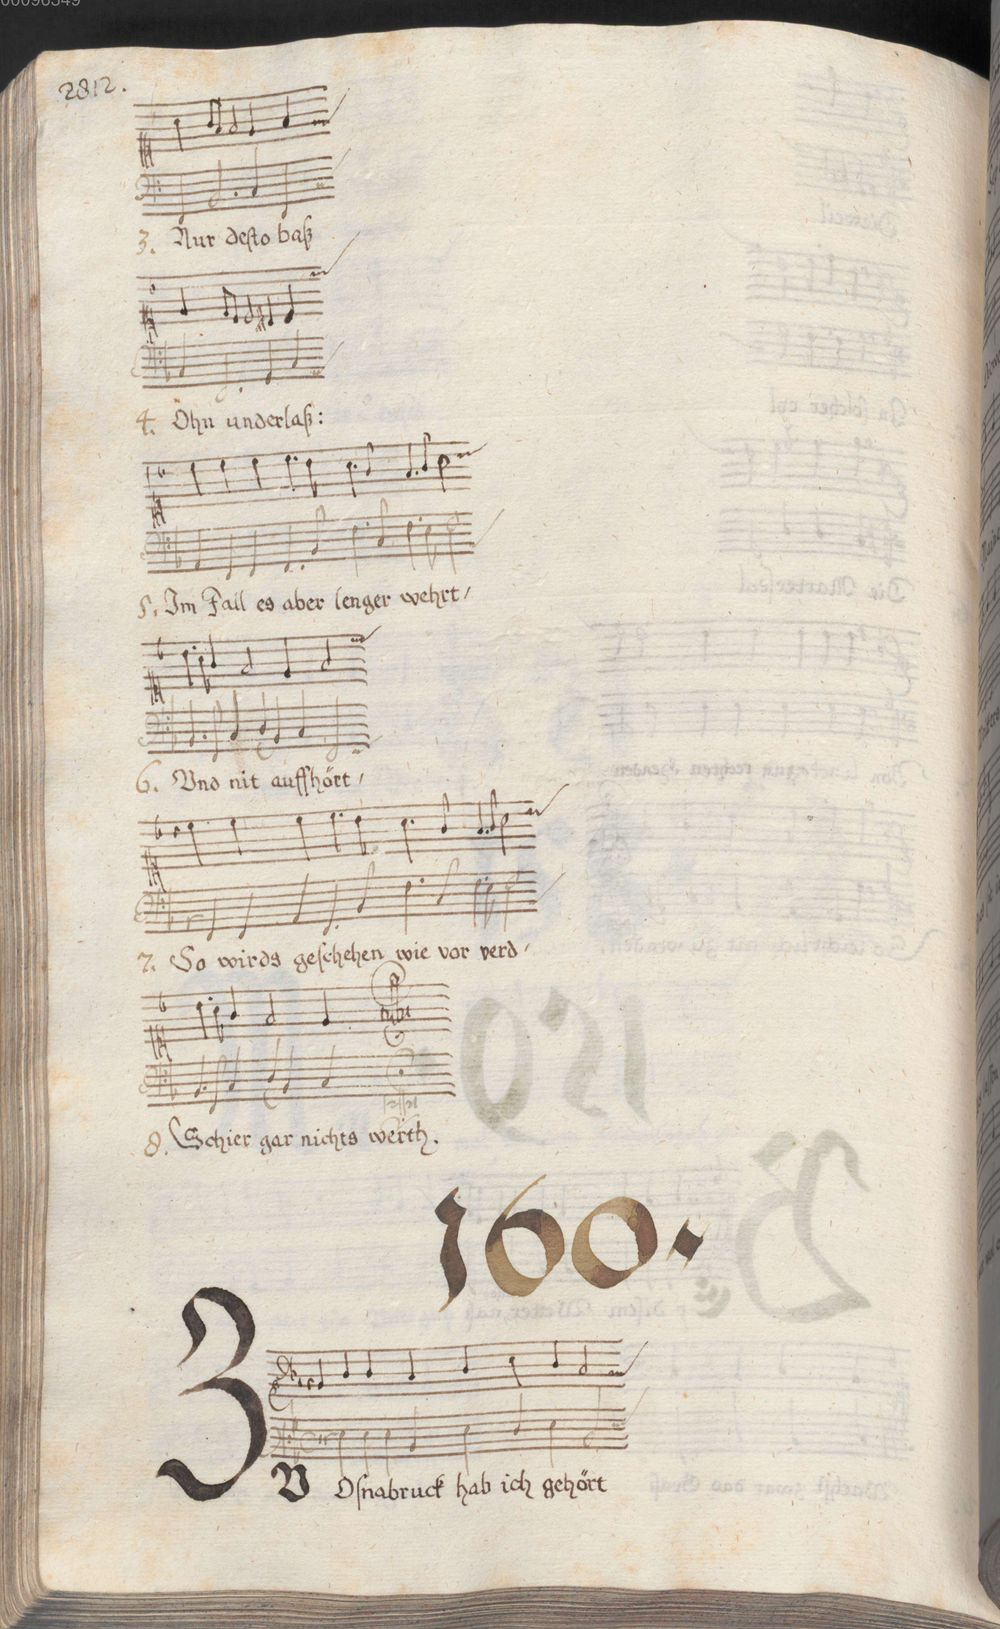 00096349
2812.
3. Nur desto baß
4. Ohn underlaß:
5. Im Fall es aber lenger wehrt,
6. Vnd nit auffhört,
7. So wirds geschehen wie vor verd,
8. Schier gar nichts werth.
160.
ZV Osnabruck hab ich gehört